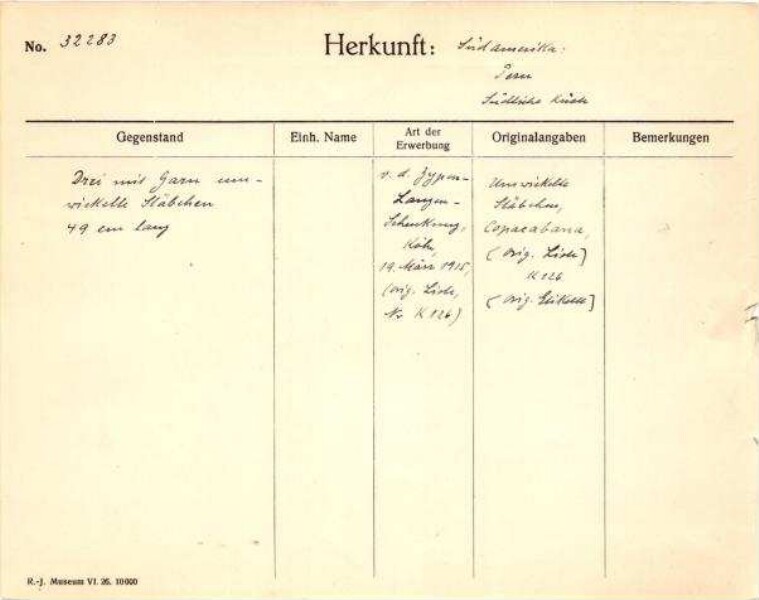 No. 32283
Herkunft: Südamerika:
Peru
Südliche Küste
Gegenstand
Einh. Name
Art der
Erwerbung
Originalangaben
Bemerkungen
Drei mit Garn um-
wickelte Stäbchen
49 cm lang
v. d. Zypen-
Langen-
Schenkung,
Köln,
19. März 1915,
(orig. Liste,
Nr K 126)
Umwickelte
Stäbchen,
Copacabana,
(orig. Liste]
K 126
(orig. Etikett]
R.-J. Museum VI. 26. 10000